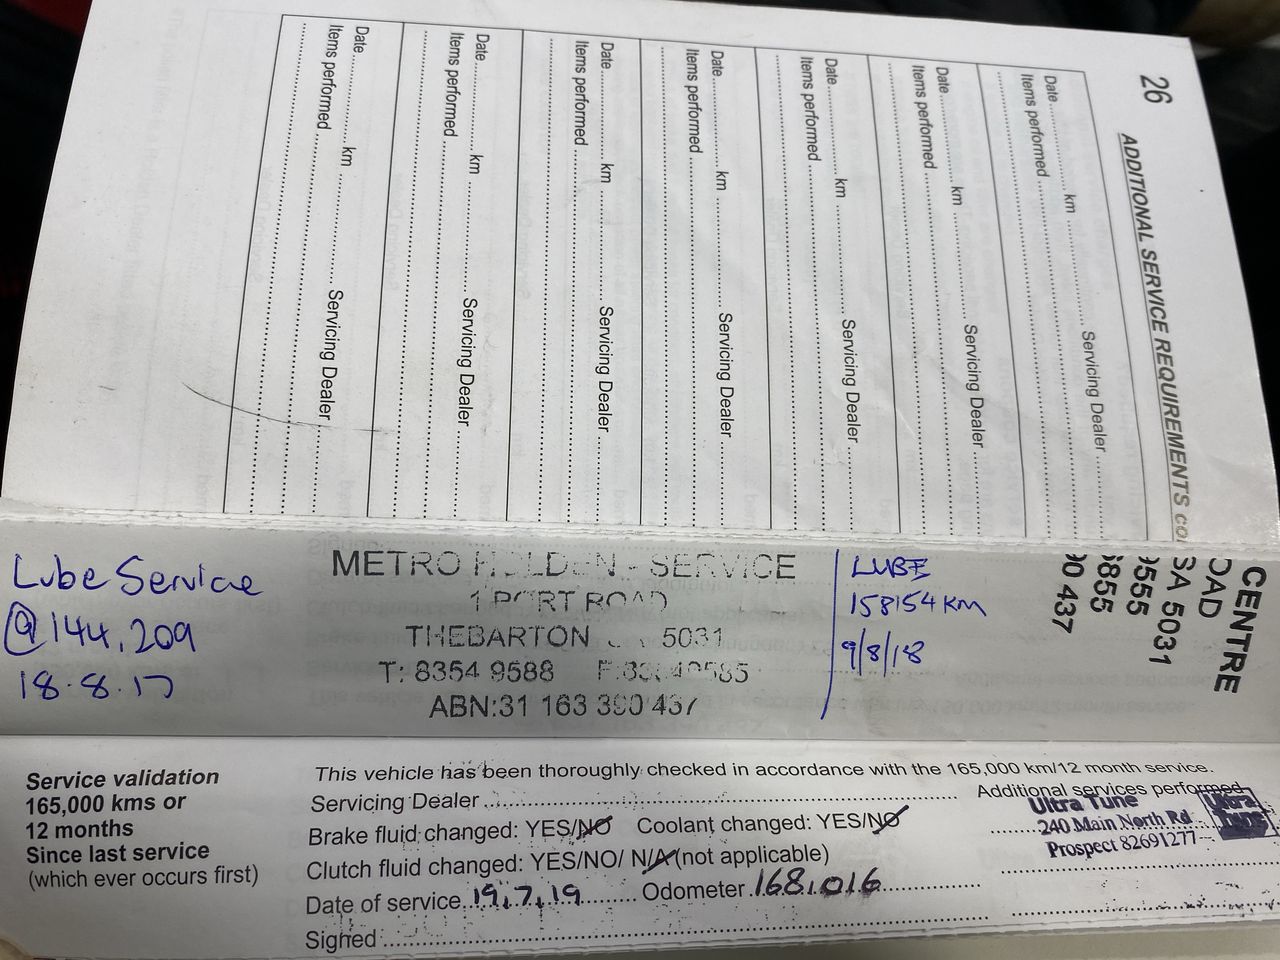 26
ADDITIONAL SERVICE REQUIREMENTS
Date.......... km .......... Servicing Dealer ..........
Items performed ..........
Date.......... km .......... Servicing Dealer ..........
Items performed ..........
Date.......... km .......... Servicing Dealer ..........
Items performed ..........
Date.......... km .......... Servicing Dealer ..........
Items performed ..........
Date.......... km .......... Servicing Dealer ..........
Items performed ..........
Date.......... km .......... Servicing Dealer ..........
Items performed ..........
Date.......... km .......... Servicing Dealer ..........
Items performed ..........
CENTRE
OAD
SA 5031
9555
3855
90 437
Lube Service
@ 144,209
18.8.17
METRO HOLDEN - SERVICE
1 PORT ROAD
THEBARTON 5031
T: 8354 9588
ABN:31 163 390 437
LUBE
158154 KM
9/8/18
Service validation
165,000 kms or
12 months
Since last service
(which ever occurs first)
This vehicle has been thoroughly checked in accordance with the 165,000 km/12 month service.
Servicing Dealer .......... Additional services performed
Brake fluid changed: YES/NO Coolant changed: YES/NO
Clutch fluid changed: YES/NO/ N/A (not applicable)
Date of service. 19.7.19 .......... Odometer 168,016
Signed ..........
Ultra Tune
240 Main North Rd
Prospect 82691277
Ultra
Tune